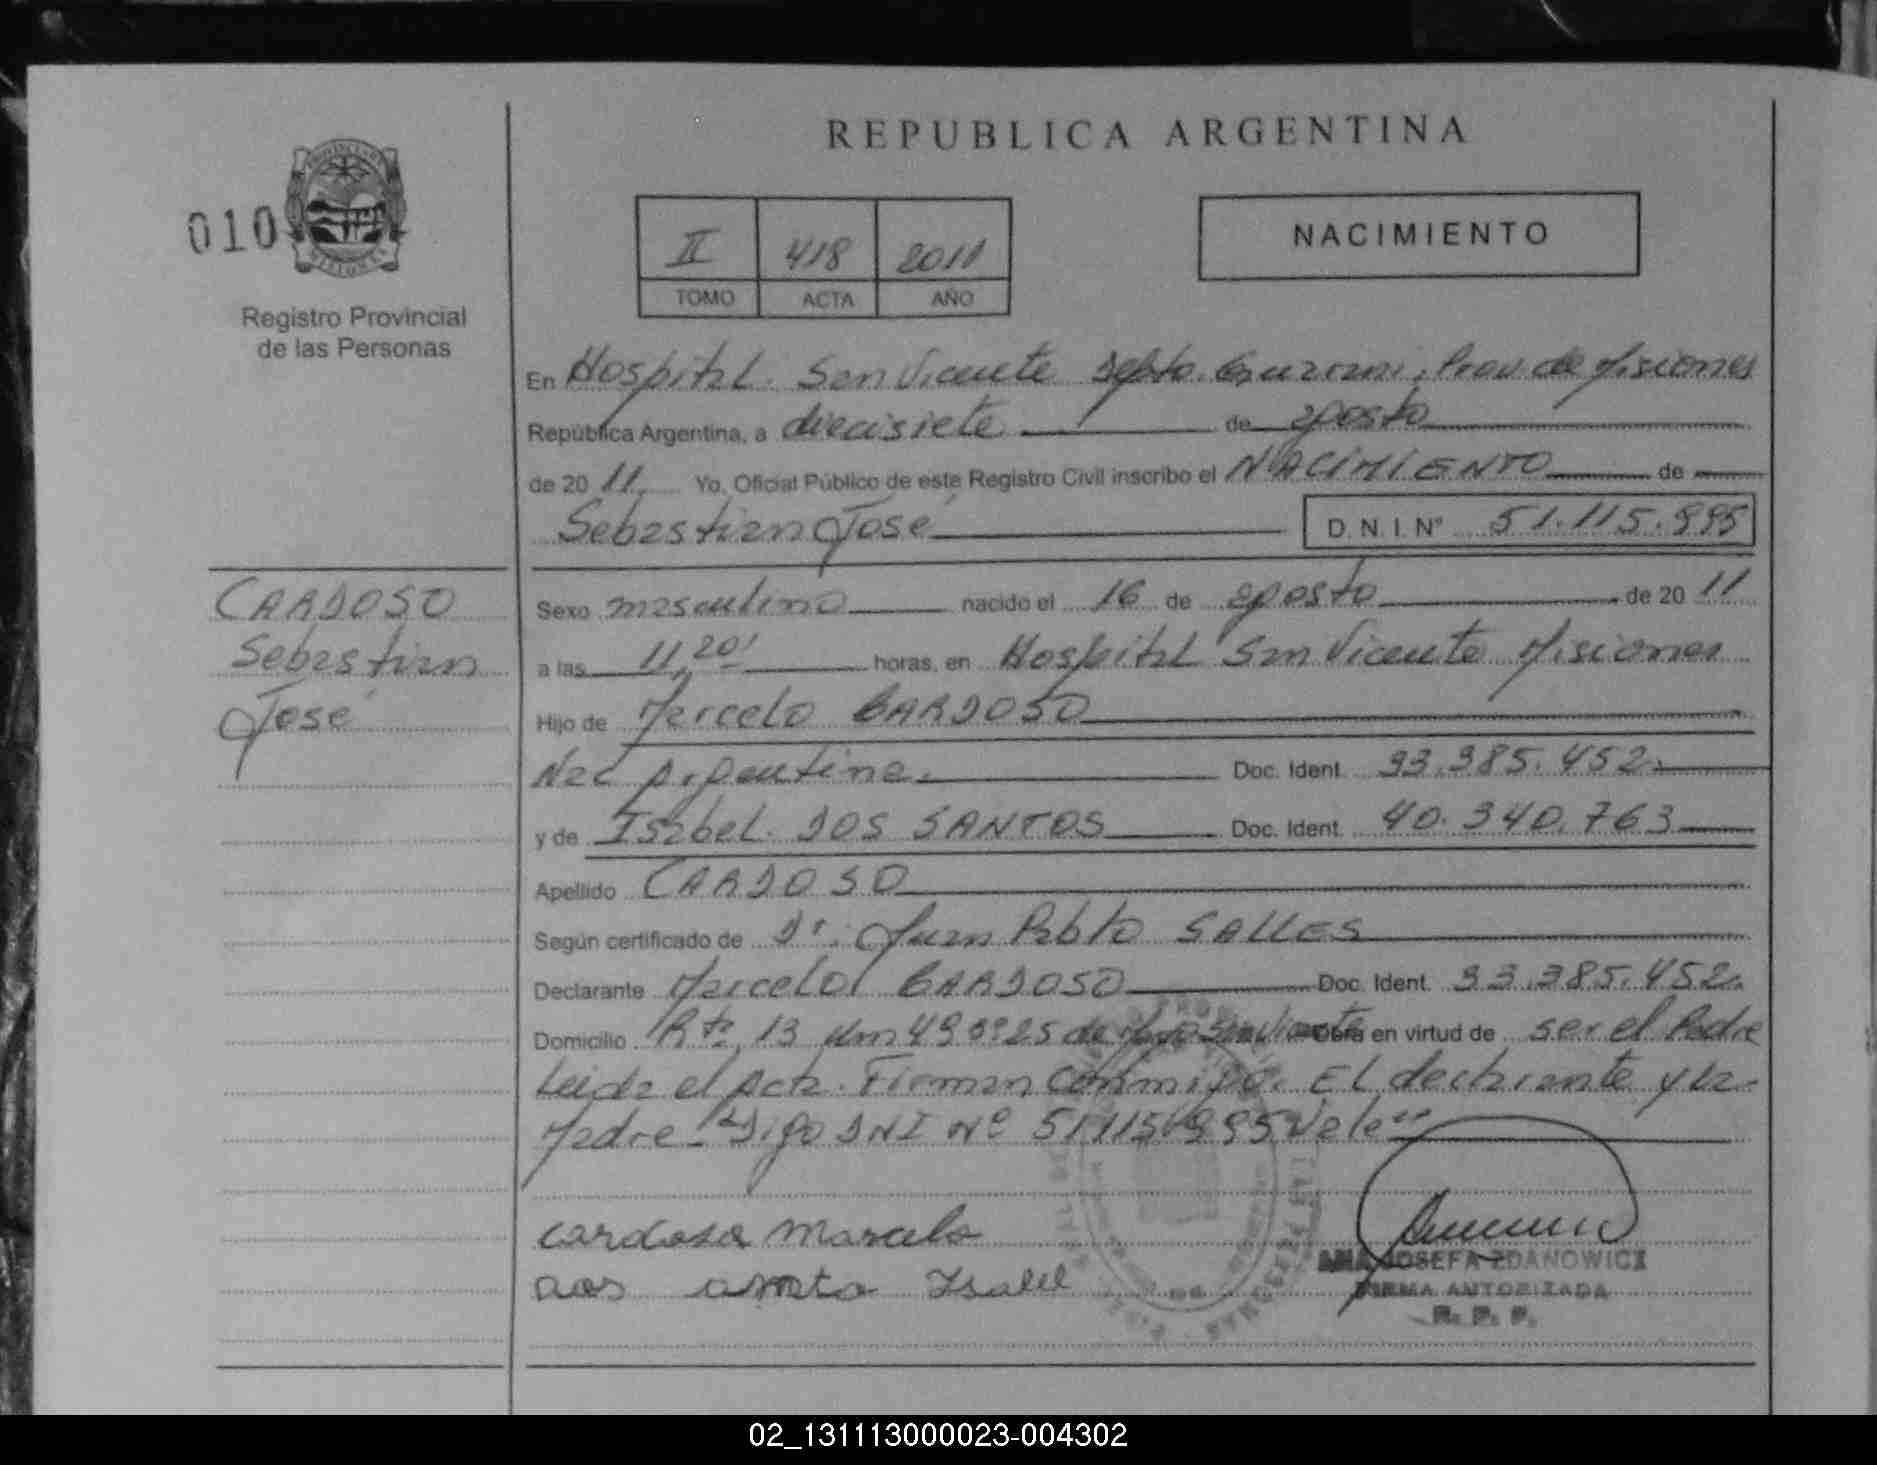 REPUBLICA ARGENTINA
010
Registro Provincial
de las Personas
II 418 2011
TOMO ACTA AÑO
NACIMIENTO
En Hospital San Vicente Depto. Guarani, Prov de Misiones
República Argentina, a diecisiete de agosto
de 2011 Yo, Oficial Público de este Registro Civil inscribo el NACIMIENTO de
Sebastian José D.N.I.Nº 51.115.995
CARDOSO
Sebastian
José
Sexo masculino nacido el 16 de agosto de 2011
a las 11,20' horas, en Hospital San Vicente Misiones
Hijo de Marcelo CARDOSO
Nac Argentina. Doc. Ident. 33.385.452.
y de Isabel DOS SANTOS Doc. Ident. 40.340.763
Apellido CARDOSO
Según certificado de Dr. Juan Pablo SALLES
Declarante Marcelo CARDOSO Doc. Ident. 33.385.452.
Domicilio Rta 13 Km de San Vicente Obra en virtud de ser el Padre
Leida el Acta. Firman Conmigo. El declarante y la
Madre. "Digo DNI Nº 51115995 Vale"
cardoso Marcelo
dos Isabel
ANA JOSEFA ZDANOWICZ
FIRMA AUTORIZADA
R. P. P.
02_131113000023-004302